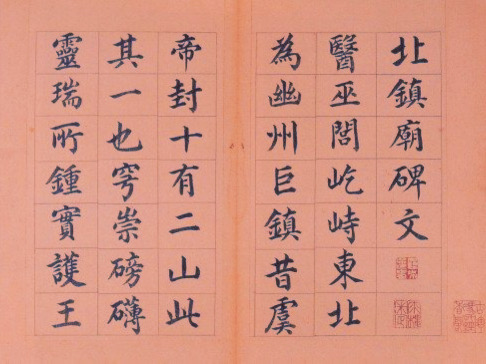 北鎮廟碑文
醫巫閭屹峙東北
為幽州巨鎮昔虞
帝封十有二山此
其一也穹崇磅礴
靈瑞所鍾實護王